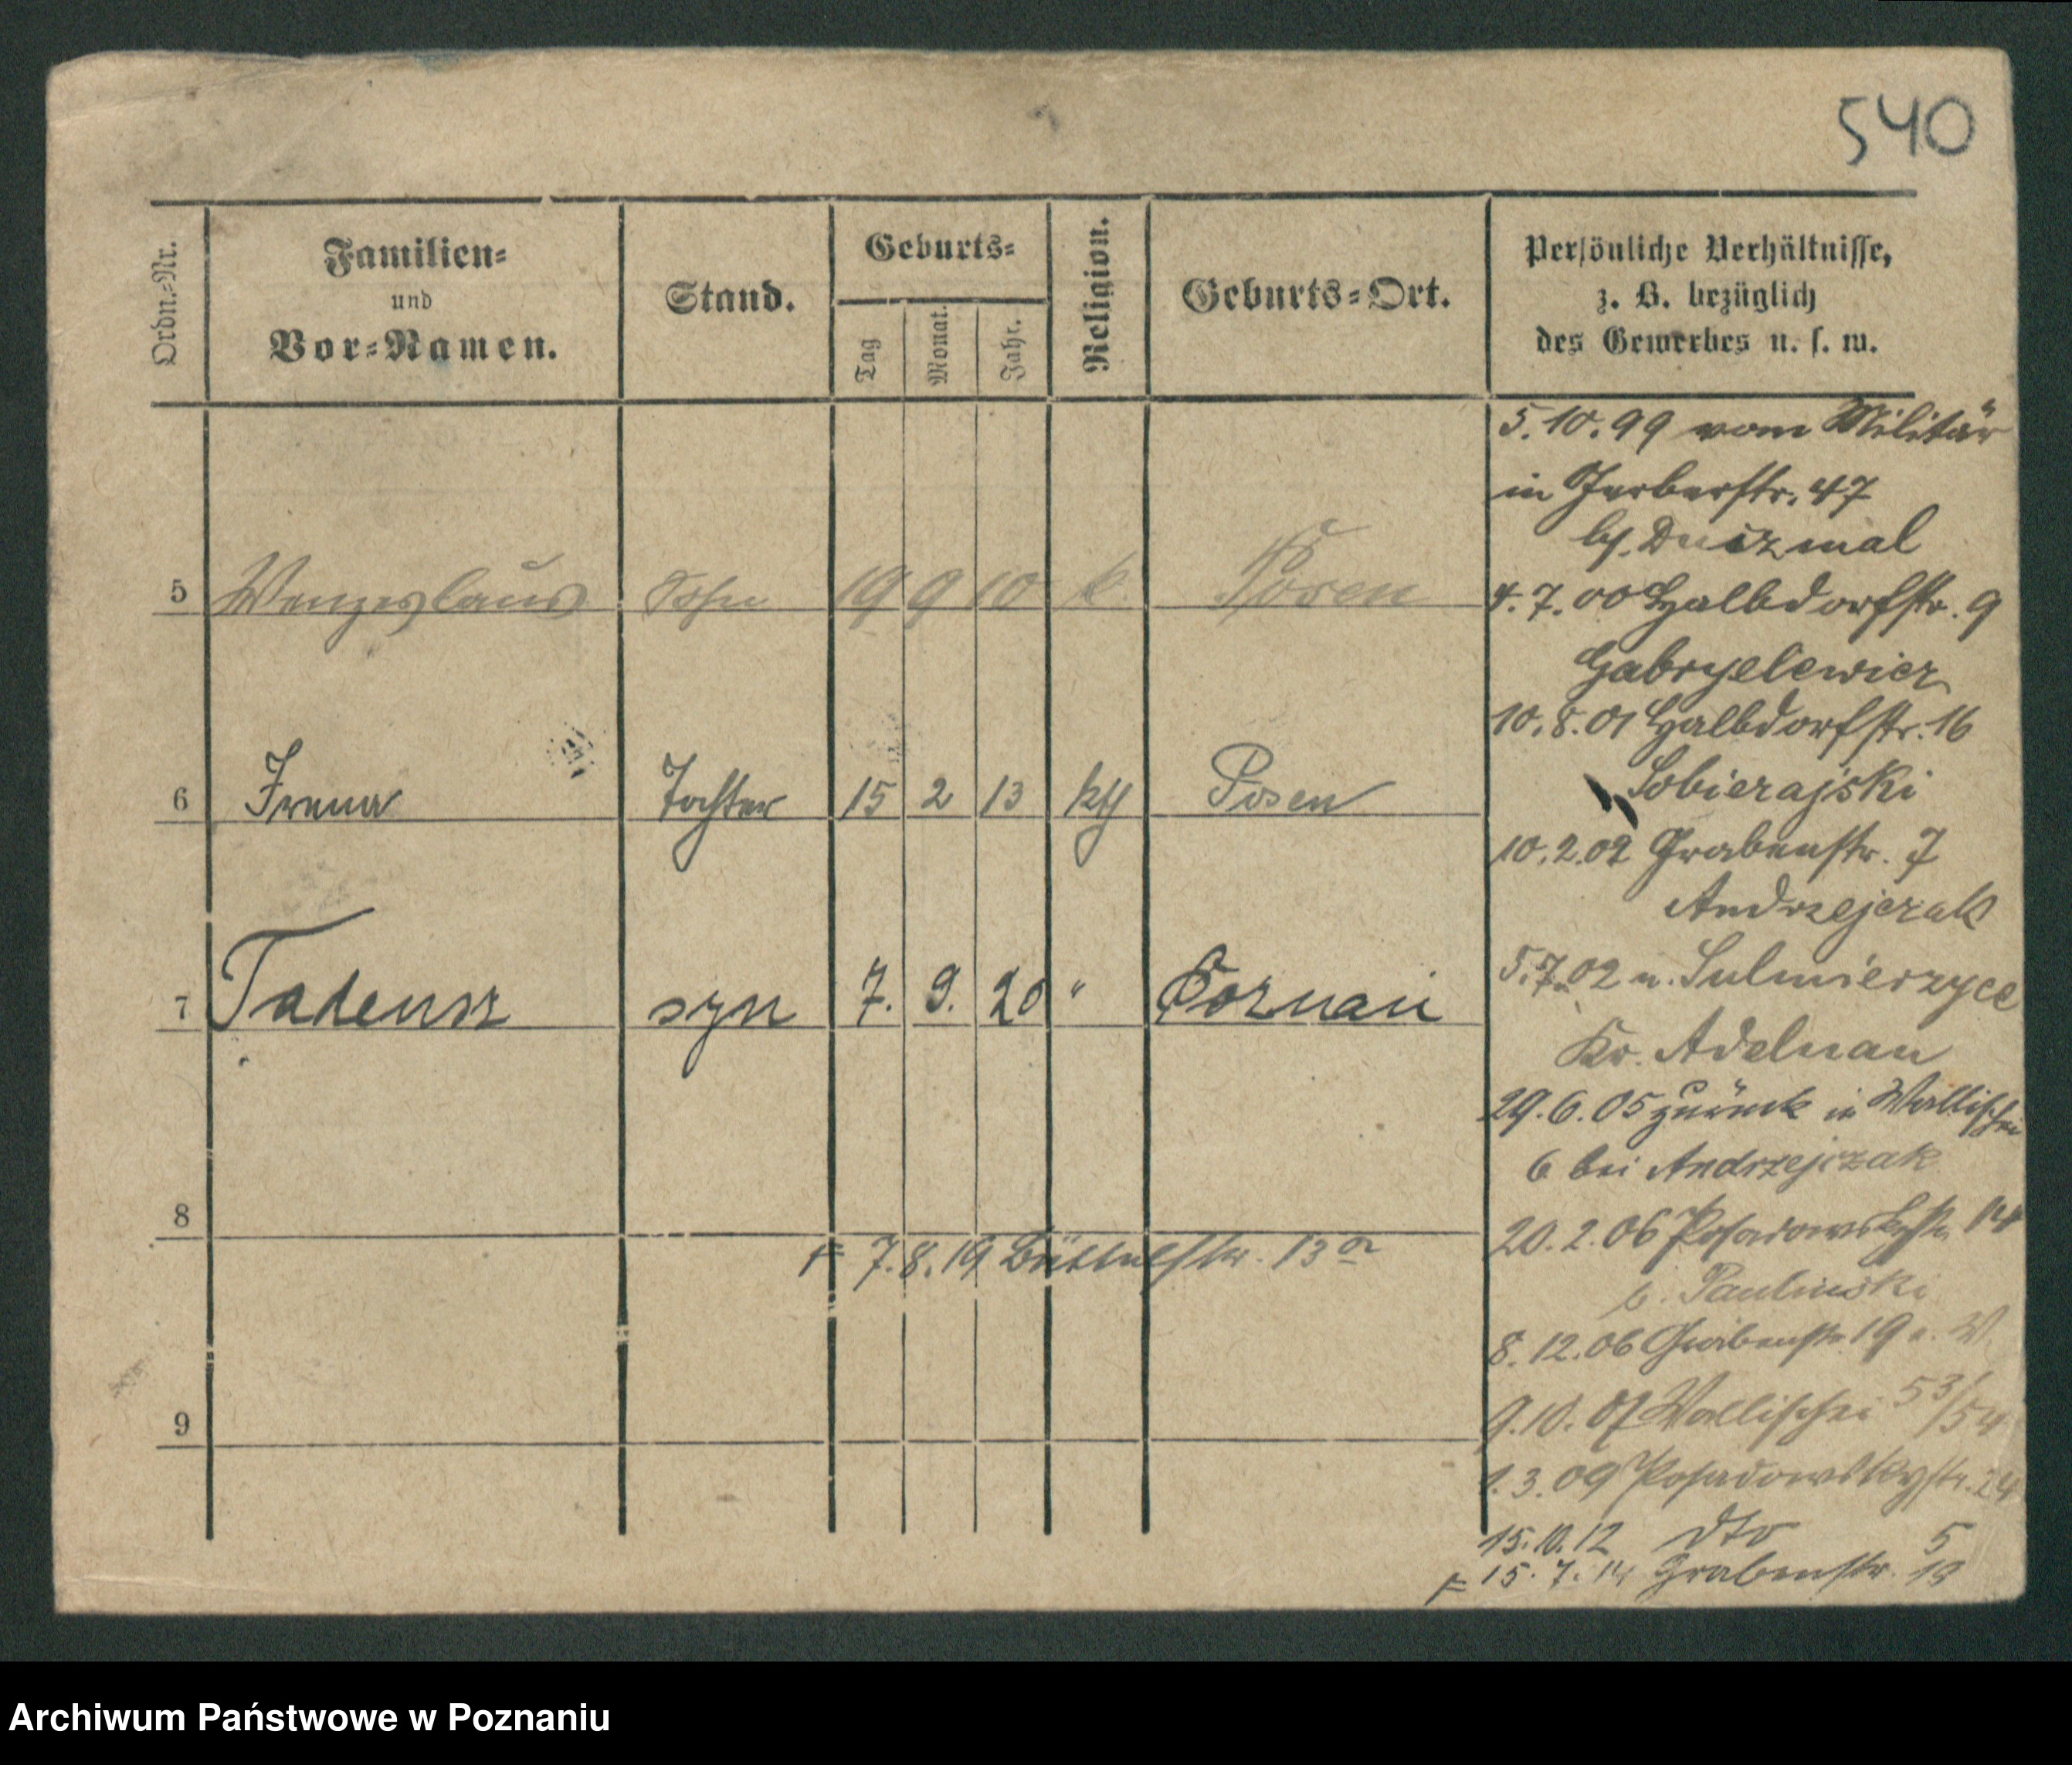 540
Ordn.-Nr.
Familien-
und
Vor-Namen.
Stand.
Geburts-
Tag
Monat.
Jahr.
Religion.
Geburts-Ort.
Persönliche Verhältnisse,
z. B. bezüglich
des Gewerbes u. s. w.
5 Wenzeslaus Sohn 19 9 10 k. Posen
6 Irena Tochter 15 2 13 kth Posen
7 Tadeusz syn 7. 9. 20 " Poznań
8
9
5.10.99 vom Militär
in Gerberstr. 47
bei
4.7.00 Halbdorfstr. 9
Gabryelewicz
10.8.01 Halbdorfstr. 16
Sobierajski
10.2.02 Grabenstr. 7
Andrzejczak
5.7.02 n. Sulmierzyce
Kr. Adelnau
29.6.05 zurück in Wallischei
6 bei Andrzejczak
20.2.06 Posadowskystr. 14
b. Paulinski
8.12.06 Grabenstr. 19
9.10.07 Wallischei 53/54
1.3.09 Posadowskystr. 24
15.10.12 dto 5
15.7.14 Grabenstr. 13
7.8.19 Büttelstr. 13a
Archiwum Państwowe w Poznaniu